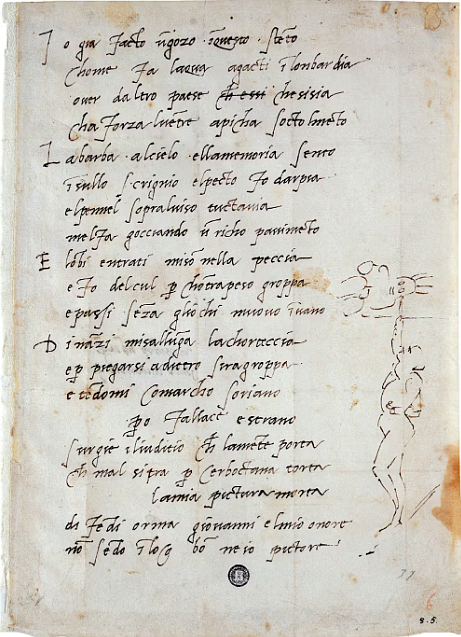 I o gia facto ũ gozo ĩ questo stẽto
chome fa lacqua agacti ĩ lombardia
over daltro paese ch̃ essi che sisia
cha forza lvẽtre apicha socto lmẽto
L a barba alcielo ellamemoria sento
ĩ sullo scrignio elpecto fo darpia
elpennel sopraluiso tuctavia
melfa gocciando ũ richo pauimẽto
E lõbi entrati misõ nella peccia
e fo delcul p chõtrapeso groppa
e passi sẽza gliochi muouo ĩuano
D inãzi misalluga lachorteccia
e p piegarsi adietro siragroppa
e tẽdomi comarcho soriano
po fallace e strano
surgie il iuditio ch̃ lamẽte porta
ch̃ mal sitra p cerboctana torta
lamia pictura morta
di fedi orma giouanni elmio onore
nõ sẽdo ĩ log bõ ne io pictore
77
8.5.